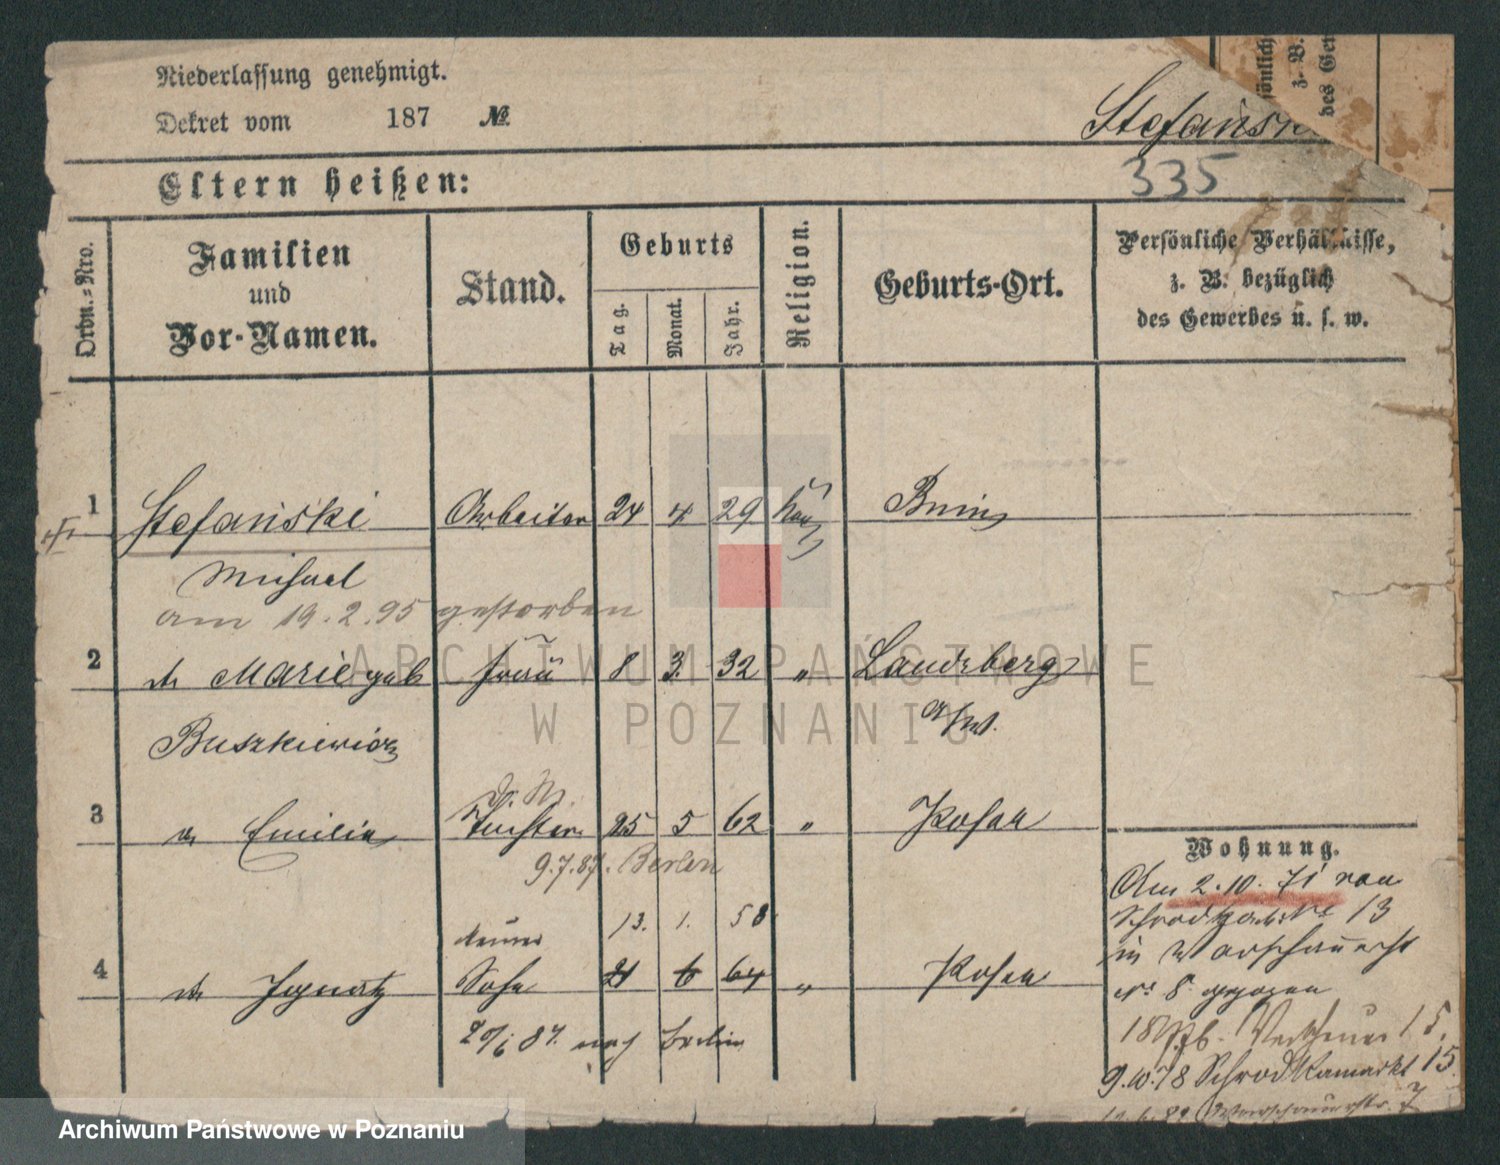 Niederlassung genehmigt.
Dekret vom 187 №
Stefański
335
Eltern heißen:
Ordn.=Nro.
Familien
und
Vor-Namen.
Stand.
Geburts
Tag.
Monat.
Jahr.
Religion.
Geburts-Ort.
Persönliche Verhältnisse,
z. B. bezüglich
des Gewerbes u. s. w.
sönlich
z. B.
des Gew
1 Stefański Arbeiter 24 4 29 Bnin
Michael
am 19.2.95 gestorben
2 Marie geb Frau 8 3. 32 " Landsberg
Buszkiewicz a/W.
3 Emilie Tochter 25 5 62 " Posen
9.7.87. Berlin
13. 1. 58
4 Ignatz Sohn 21 6 64 " Posen
87. nach Berlin
Wohnung.
Am 2.10.71 von
13
in
No 8 gezogen
15.
9.10.78 Schrodkamarkt 15.
7
ARCHIWUM PAŃSTWOWE
W POZNANIU
Archiwum Państwowe w Poznaniu